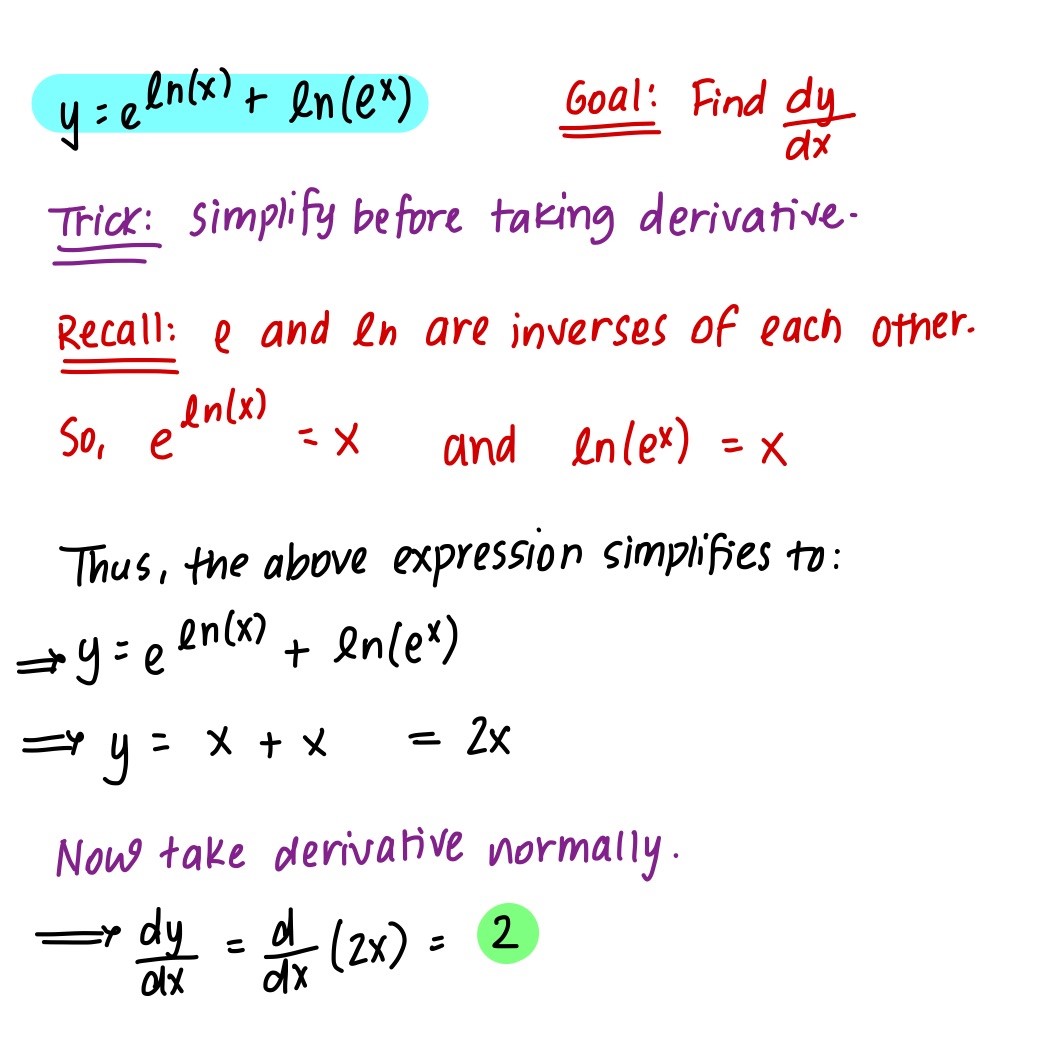 y = e^ln(x) + ln(e^x) Goal: Find dy/dx
Trick: simplify before taking derivative.
Recall: e and ln are inverses of each other.
So, e^ln(x) = x and ln(e^x) = x
Thus, the above expression simplifies to:
⇒ y = e^ln(x) + ln(e^x)
⇒ y = x + x = 2x
Now take derivative normally.
⇒ dy/dx = d/dx (2x) = 2